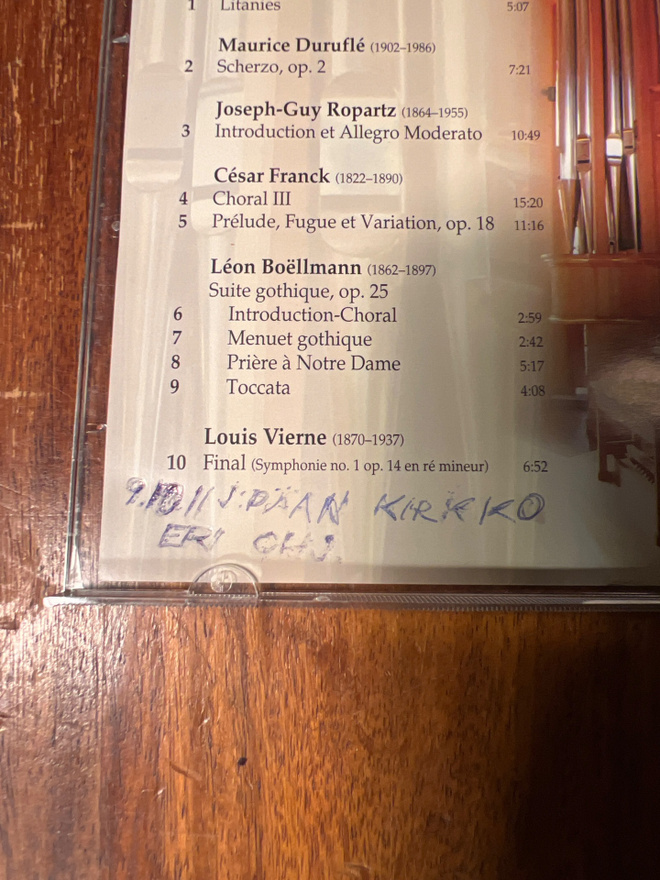 1 Litanies 5:07
Maurice Duruflé (1902–1986)
2 Scherzo, op. 2 7:21
Joseph-Guy Ropartz (1864–1955)
3 Introduction et Allegro Moderato 10:49
César Franck (1822–1890)
4 Choral III 15:20
5 Prélude, Fugue et Variation, op. 18 11:16
Léon Boëllmann (1862–1897)
Suite gothique, op. 25
6 Introduction-Choral 2:59
7 Menuet gothique 2:42
8 Prière à Notre Dame 5:17
9 Toccata 4:08
Louis Vierne (1870–1937)
10 Final (Symphonie no. 1 op. 14 en ré mineur) 6:52
J:PÄÄN KIRKKO
ERI OHJ.